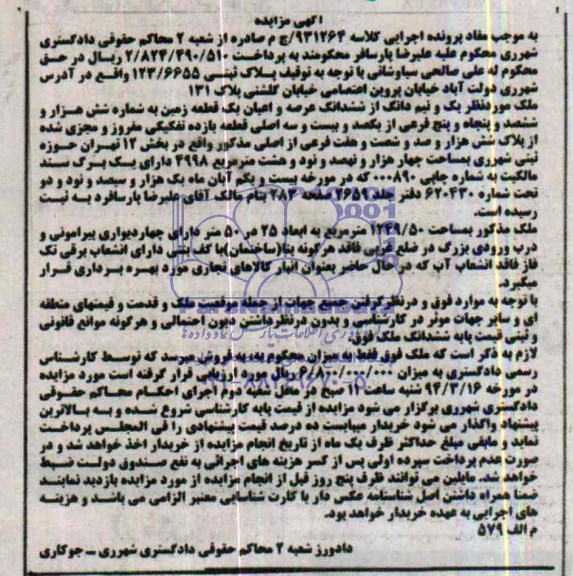 آگهی مزایده
به موجب مفاد پرونده اجرایی کلاسه ۹۳۱۲۶۴/ج م صادره از شعبه ۲ محاکم حقوقی دادگستری
شهرری محکوم علیه علیرضا پارسافر محکومند به پرداخت ۲/۸۲۴/۴۹۰/۵۱۰ ریال در حق
محکوم له علی صالحی سیاوشانی با توجه به توقیف پلاک ثبتی ۱۲۳/۶۶۵۵ واقع در آدرس
شهرری دولت آباد خیابان پروین اعتصامی خیابان گلشنی پلاک ۱۳۱
ملک موردنظر یک و نیم دانگ از ششدانگ عرصه و اعیان یک قطعه زمین به شماره شش هزار و
ششصد و پنجاه و پنج فرعی از یکصد و بیست و سه اصلی قطعه یازده تفکیکی مفروز و مجزی شده
از پلاک شش هزار و صد و شصت و هفت فرعی از اصلی مذکور واقع در بخش ۱۲ تهران حوزه
ثبتی شهرری بمساحت چهار هزار و نهصد و نود و هشت مترمربع ۴۹۹۸ دارای یک برگ سند
مالکیت به شماره چاپی ۰۰۰۸۹۰ که در مورخه بیست و یکم آبان ماه یک هزار و سیصد و نود و دو
تحت شماره ۶۲۰۴۳۰ دفتر جلد ۲۶۵۱ صفحه ۲۸۳ بنام مالک آقای علیرضا پارسافرد به ثبت
رسیده است.
ملک مذکور بمساحت ۱۲۴۹/۵۰ مترمربع به ابعاد ۲۵ در ۵۰ متر دارای چهاردیواری پیرامونی و
درب ورودی بزرگ در ضلع غربی فاقد هرگونه بنا(ساختمان)با کف بتنی دارای انشعاب برقی تک
فاز فاقد انشعاب آب که در حال حاضر بعنوان انبار کالاهای تجاری مورد بهره برداری قرار
میگیرد.
با توجه به موارد فوق و درنظر گرفتن جمیع جهات از جمله موقعیت ملک و قدمت و قیمتهای منطقه
ای و سایر جهات موثر در کارشناسی و بدون درنظر داشتن دیون احتمالی و هرگونه موانع قانونی
و ثبتی قیمت پایه ششدانگ ملک فوق
لازم به ذکر است که ملک فوق فقط به میزان محکوم به، به فروش میرسد که توسط کارشناس
رسمی دادگستری به میزان ۶/۸۱۰/۰۰۰/۰۰۰ ریال مورد ارزیابی قرار گرفته است مورد مزایده
در مورخه ۹۴/۳/۱۶ شنبه ساعت ۱۱ صبح در محل شعبه دوم اجرای احکام محاکم حقوقی
دادگستری شهرری برگزار می شود مزایده از قیمت پایه کارشناسی شروع شده و به بالاترین
پیشنهاد واگذار می شود خریدار میبایست ده درصد قیمت پیشنهادی را فی المجلس پرداخت
نماید و مابقی مبلغ حداکثر ظرف یک ماه از تاریخ انجام مزایده از خریدار اخذ خواهد شد و در
صورت عدم پرداخت سپرده اولی پس از کسر هزینه های اجرائی به نفع صندوق دولت ضبط
خواهد شد. مایلین می توانند ظرف پنج روز قبل از انجام مزایده از مورد مزایده بازدید نمایند
ضمنا همراه داشتن اصل شناسنامه عکس دار یا کارت شناسایی معتبر الزامی می باشد و هزینه
های اجرایی به عهده خریدار خواهد بود.
م الف ۵۷۹
دادورز شعبه ۲ محاکم حقوقی دادگستری شهرری - جوکاری